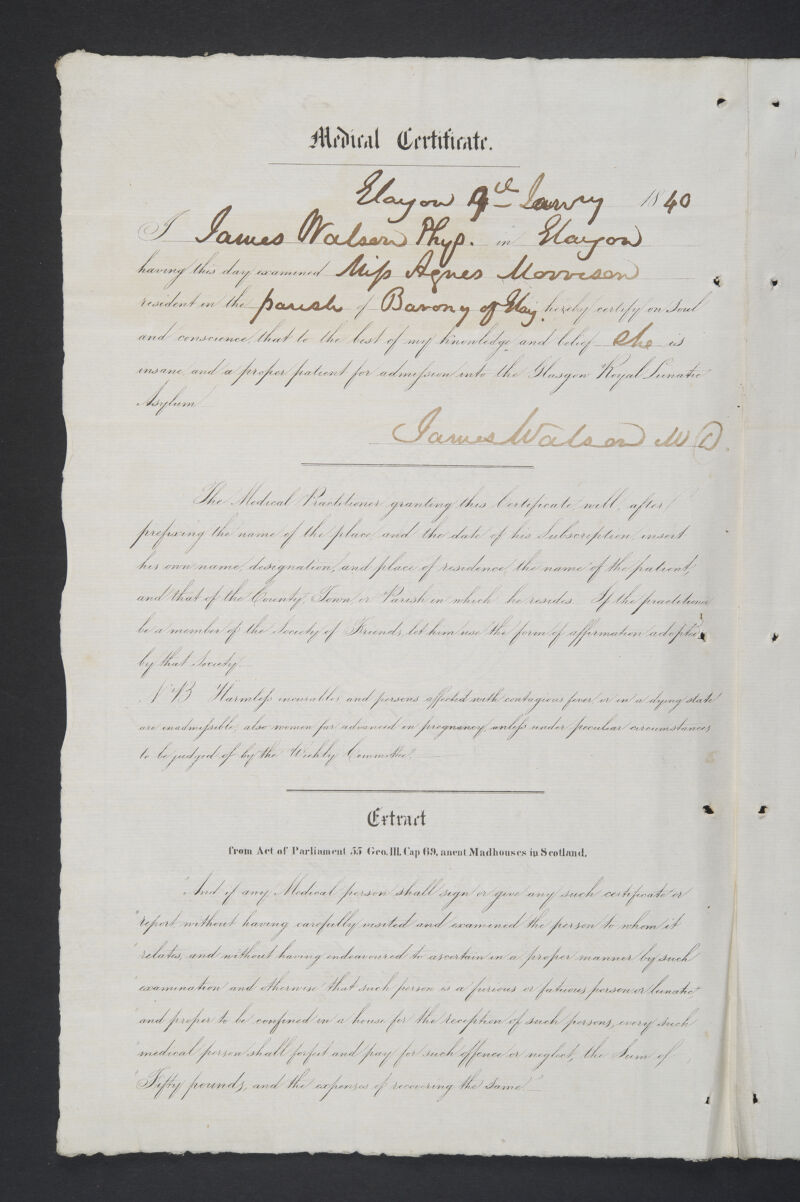 Medical Certificate.
Glasgow 9th Janry 1840
I James Watson Phys. in Glasgow
having this day examined Miss Agnes Morrison
resident in the parish of Barony of Glasg. hereby certify on soul
and conscience, that to the best of my knowledge and belief she is
insane, and a proper patient for admission into the Glasgow Royal Lunatic
Asylum
James Watson M D.
The Medical Practitioner granting this Certificate will, after
prefixing the name of the place, and the date of his Subscription, insert
his own name, designation, and place of residence, the name of the patient,
and that of the County, Town, or Parish in which he resides. If the practitioner
be a member of the Society of Friends, let him use the form of affirmation adopted
by that Society
N.B Harmless incurables and persons affected with contagious fever or in a dying state
are inadmissible; also women far advanced in pregnancy, unless under peculiar circumstances
to be judged of by the Weekly Committee.
Extract
from Act of Parliament 55 Geo. III. Cap 69, anent Madhouses in Scotland.
"And if any Medical person shall sign or give any such certificate or
"report without having carefully visited and examined the person to whom it
"relates, and without having endeavoured to ascertain in a proper manner by such
"examination and otherwise that such person is a furious or fatuous person or lunatic
"and proper to be confined in a house for the reception of such persons, every such
"medical person shall forfeit and pay for such offence or neglect, the Sum of
"Fifty pounds, and the expenses of recovering the same"